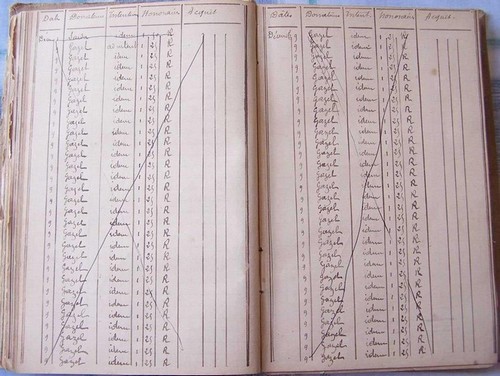 Date Donateurs Intention Honoraires Acquit
idem 1 R
9 Gazel 1 25 R
9 Gazel idem 1 25 R
9 Gazel idem 1 25 R
9 Gazel idem 1 25 R
9 Gazel idem 1 25 R
9 Gazel idem 1 25 R
9 Gazel idem 1 25 R
9 Gazel idem 1 25 R
9 Gazel idem 1 25 R
9 Gazel idem 1 25 R
9 Gazel idem 1 25 R
9 Gazel idem 1 25 R
9 Gazel idem 1 25 R
9 Gazel idem 1 25 R
9 Gazel idem 1 25 R
9 Gazel idem 1 25 R
9 Gazel idem 1 25 R
9 Gazel idem 1 25 R
9 Gazel idem 1 25 R
9 Gazel idem 1 25 R
9 Gazel idem 1 25 R
9 Gazel idem 1 25 R
9 Gazel idem 1 25 R
9 Gazel idem 1 25 R
9 Gazel idem 1 25 R
9 Gazel idem 1 25 R
9 Gazel idem 1 25 R
Dates Donateurs Intent. Honoraires Acquit.
9 Gazel idem 1 25 R
9 Gazel idem 1 25 R
9 Gazel idem 1 25 R
9 Gazel idem 1 25 R
9 Gazel idem 1 25 R
9 Gazel idem 1 25 R
9 Gazel idem 1 25 R
9 Gazel idem 1 25 R
9 Gazel idem 1 25 R
9 Gazel idem 1 25 R
9 Gazel idem 1 25 R
9 Gazel idem 1 25 R
9 Gazel idem 1 25 R
9 Gazel idem 1 25 R
9 Gazel idem 1 25 R
9 Gazel idem 1 25 R
9 Gazel idem 1 25 R
9 Gazel idem 1 25 R
9 Gazel idem 1 25 R
9 Gazel idem 1 25 R
9 Gazel idem 1 25 R
9 Gazel idem 1 25 R
9 Gazel idem 1 25 R
9 Gazel idem 1 25 R
9 Gazel idem 1 25 R
9 Gazel idem 1 25 R
9 Gazel idem 1 25 R
9 Gazel idem 1 25 R
9 Gazel idem 1 25 R